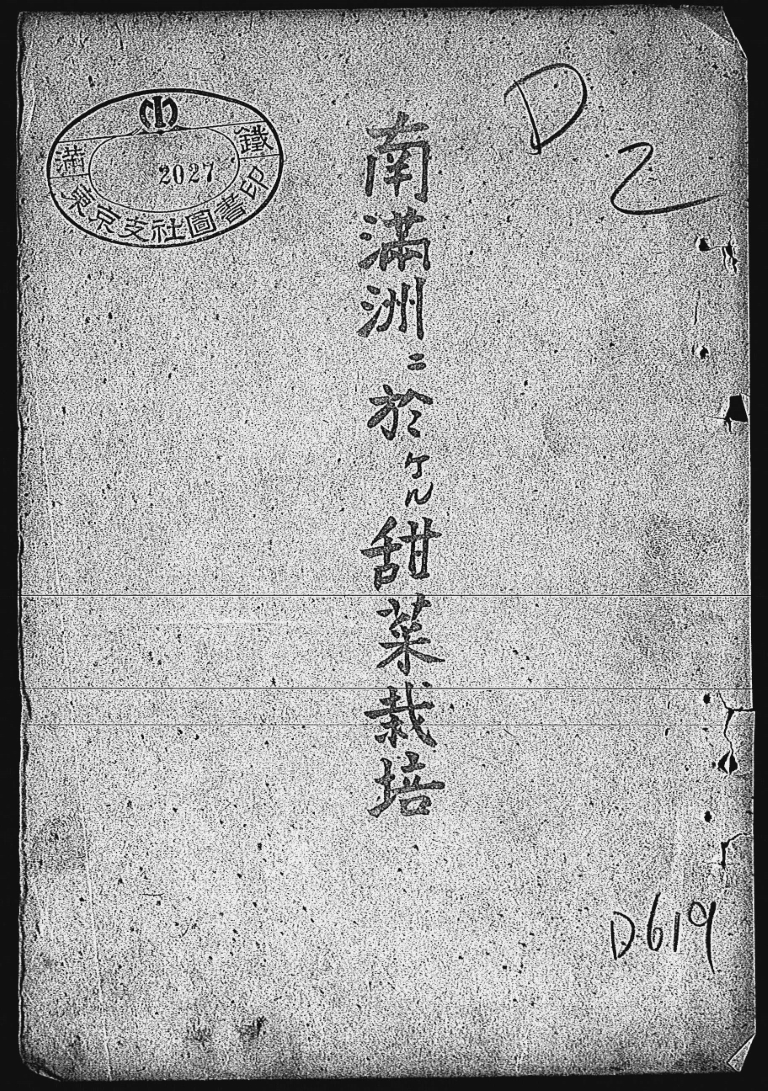 滿鐵
2027
東京支社圖書印
D
2
南滿洲ニ於ケル甜菜栽培
D.619